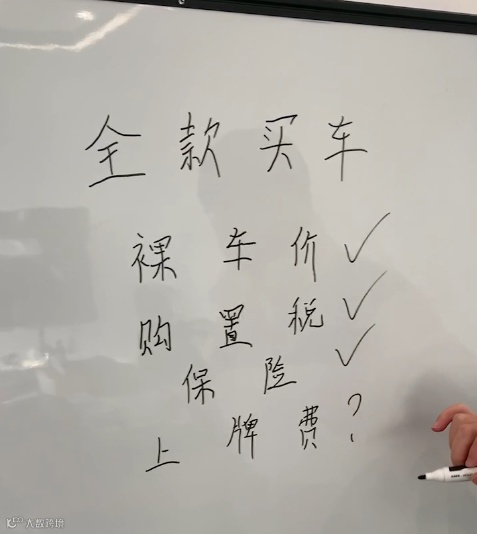 全款买车
裸车价✓
购置税✓
保险✓
上牌费？
大数跨境